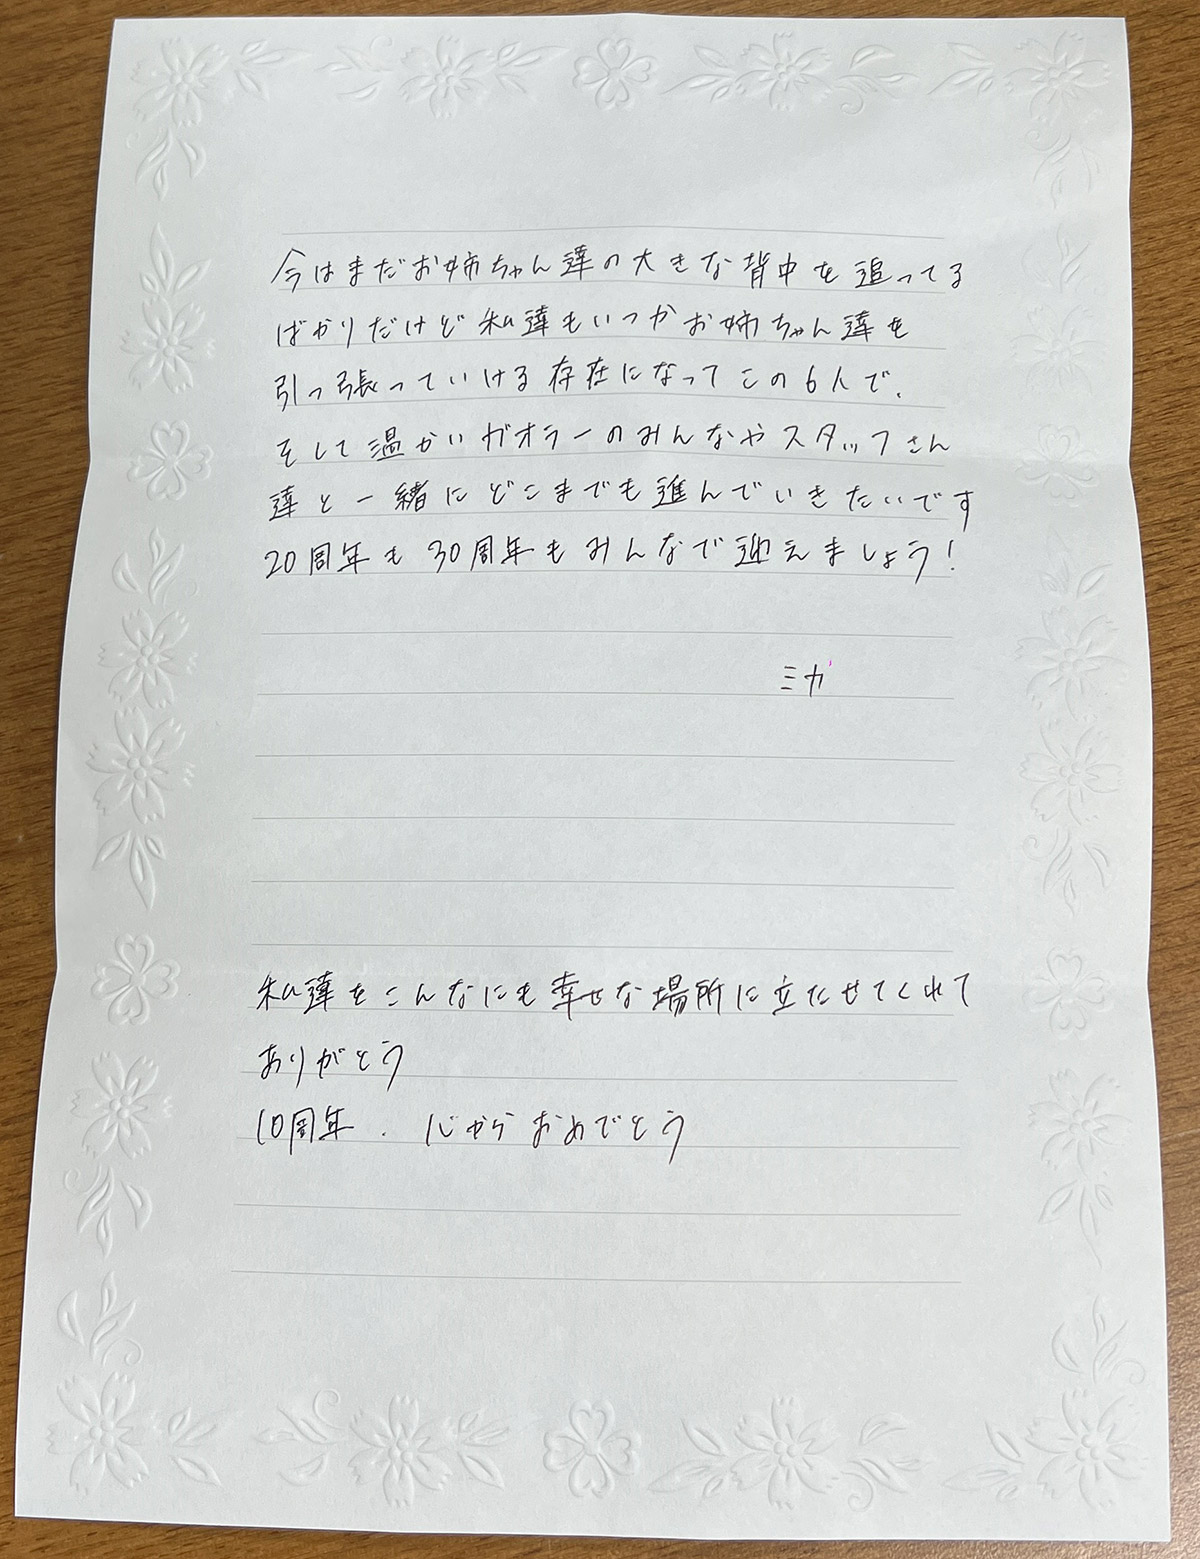 今はまだお姉ちゃん達の大きな背中を追ってる
ばかりだけど私達もいつかお姉ちゃん達を
引っ張っていける存在になってこの6人で、
そして温かいガオラーのみんなやスタッフさん
達と一緒にどこまでも進んでいきたいです
20周年も30周年もみんなで迎えましょう!
ミカ
私達をこんなにも幸せな場所に立たせてくれて
ありがとう
10周年、心からおめでとう